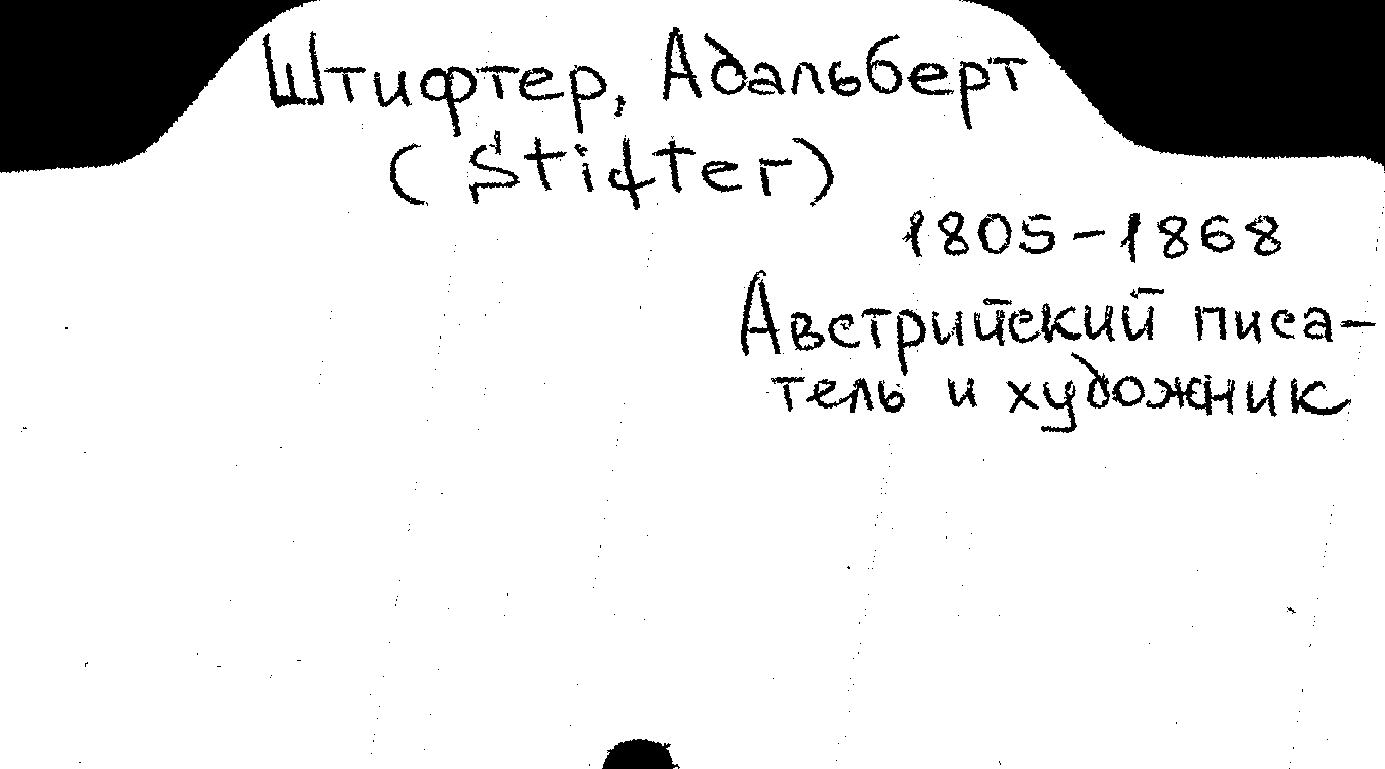 Штифтер, Адальберт
(Stifter)
1805-1868
Австрийский писа-
тель и художник